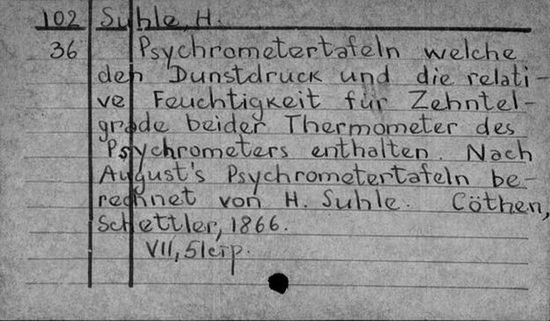 102 Suhle, H.
36 Psychrometertafeln welche
den Dunstdruck und die relati-
ve Feuchtigkeit für Zehntel-
grade beider Thermometer des
Psychrometers enthalten. Nach
August's Psychrometertafeln be-
rechnet von H. Suhle. Cöthen,
Schettler, 1866.
VII, 51стр.